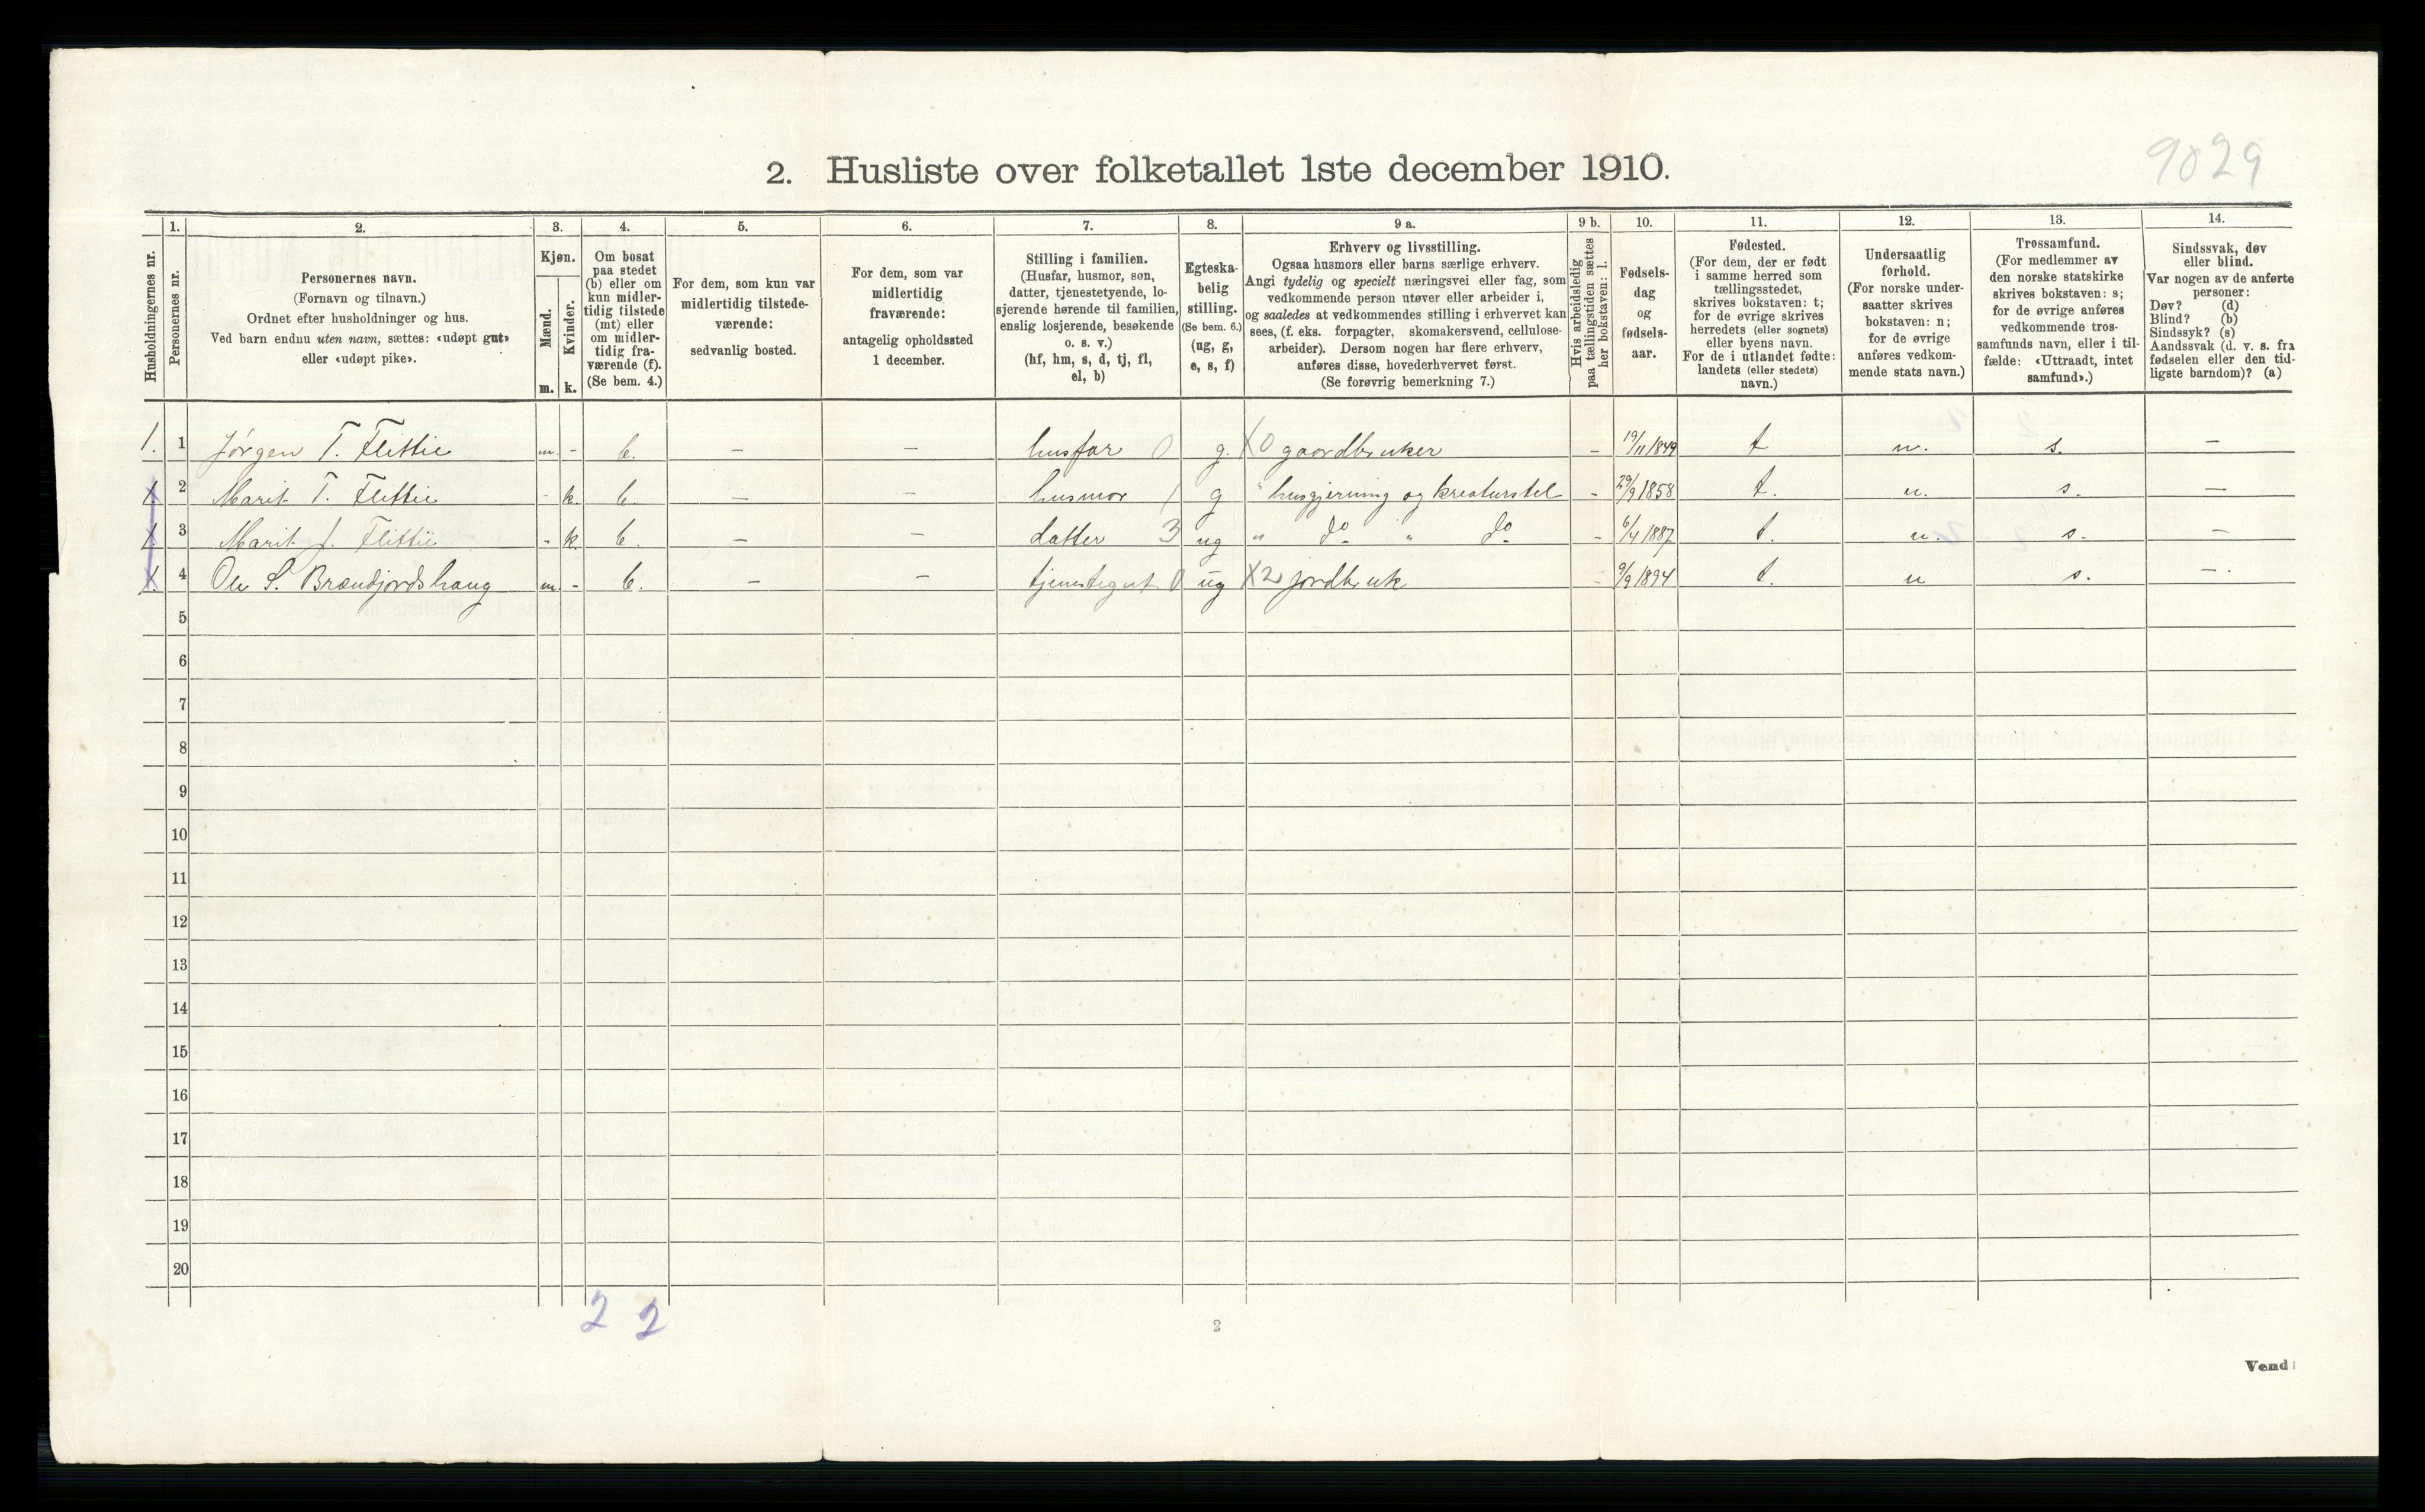 9029
2. Husliste over folketallet 1ste december 1910.
Husholdningernes nr.
1.
Personernes nr.
2.
Personernes navn.
(Fornavn og tilnavn.)
Ordnet efter husholdninger og hus.
Ved barn endnu uten navn, sættes: «udøpt gut»
eller «udøpt pike».
3.
Kjøn.
Mænd.
Kvinder.
m. k.
4.
Om bosat
paa stedet
(b) eller om
kun midler-
tidig tilstede
(mt) eller
om midler-
tidig fra-
værende (f).
(Se bem. 4.)
5.
For dem, som kun var
midlertidig tilstede-
værende:
sedvanlig bosted.
6.
For dem, som var
midlertidig
fraværende:
antagelig opholdssted
1 december.
7.
Stilling i familien.
(Husfar, husmor, søn,
datter, tjenestetyende, lo-
sjerende hørende til familien,
enslig losjerende, besøkende
o. s. v.)
(hf, hm, s, d, tj, fl,
el, b)
8.
Egteska-
belig
stilling.
(Se bem. 6.)
(ug, g,
e, s, f)
9 a.
Erhverv og livsstilling.
Ogsaa husmors eller barns særlige erhverv.
Angi tydelig og specielt næringsvei eller fag, som
vedkommende person utøver eller arbeider i,
og saaledes at vedkommendes stilling i erhvervet kan
sees, (f. eks. forpagter, skomakersvend, cellulose-
arbeider). Dersom nogen har flere erhverv,
anføres disse, hovederhvervet først.
(Se forøvrig bemerkning 7.)
9 b.
Hvis arbeidsledig
paa tællingstiden sættes
her bokstaven: l.
10.
Fødsels-
dag
og
fødsels-
aar.
11.
Fødested.
(For dem, der er født
i samme herred som
tællingsstedet,
skrives bokstaven: t;
for de øvrige skrives
herredets (eller sognets)
eller byens navn.
For de i utlandet fødte:
landets (eller stedets)
navn.)
12.
Undersaatlig
forhold.
(For norske under-
saatter skrives
bokstaven: n;
for de øvrige
anføres vedkom-
mende stats navn.)
13.
Trossamfund.
(For medlemmer av
den norske statskirke
skrives bokstaven: s;
for de øvrige anføres
vedkommende tros-
samfunds navn, eller i til-
fælde: «Uttraadt, intet
samfund».)
14.
Sindssvak, døv
eller blind.
Var nogen av de anførte
personer:
Døv? (d)
Blind? (b)
Sindssyk? (s)
Aandssvak (d. v. s. fra
fødselen eller den tid-
ligste barndom)? (a)
1. 1 Jørgen T. Flittie m. - b. — — husfar 0 g. X0 gaardbruker - 19/11 1849 t n. s. —
2 Marit T. Flittie - k b. — — husmor 1 g " husgjerning og kreaturstel - 29/9 1858 t. n. s. —
3 Marit J. Flittie - k. b. — — datter 3 ug " do " do - 6/4 1887 t. n. s. —
4 Ole S. Brændjordshaug m. - b. — — tjenstegut 0 ug X2 jordbruk - 9/9 1894 t. n s. —
5
6
7
8
9
10
11
12
13
14
15
16
17
18
19
20
2 2
2
Vend